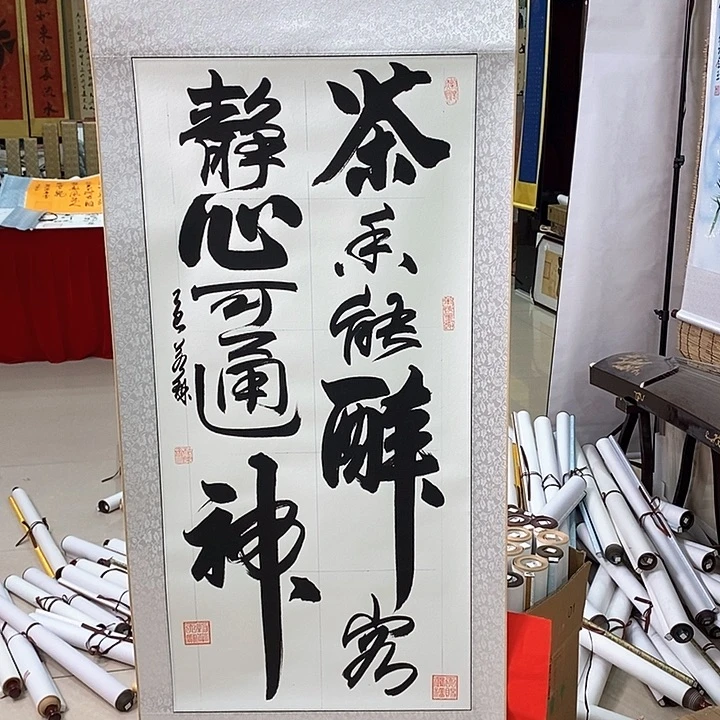 茶香能醉客
静心可通神